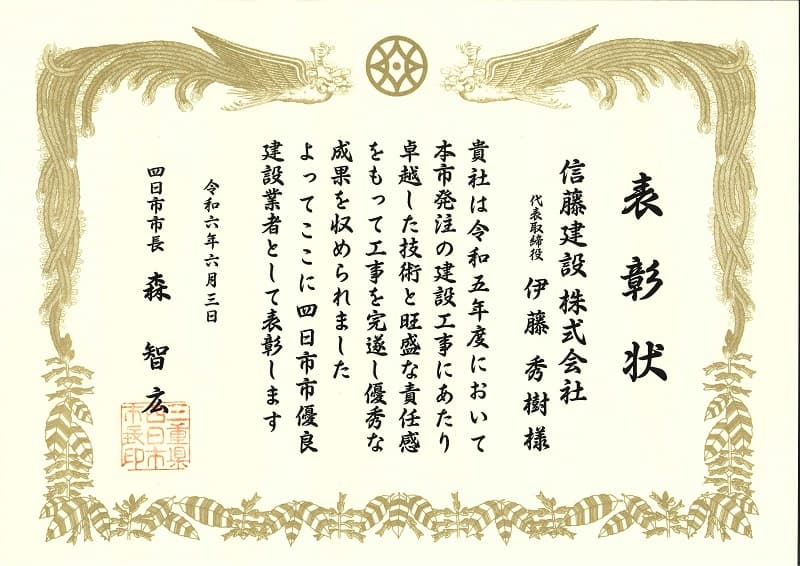 表彰状
信藤建設株式会社
代表取締役 伊藤秀樹様
貴社は令和五年度において
本市発注の建設工事にあたり
卓越した技術と旺盛な責任感
をもって工事を完遂し優秀な
成果を収められました
よってここに四日市市優良
建設業者として表彰します
令和六年六月三日
四日市市長 森智広
三重県
四日市
市長印